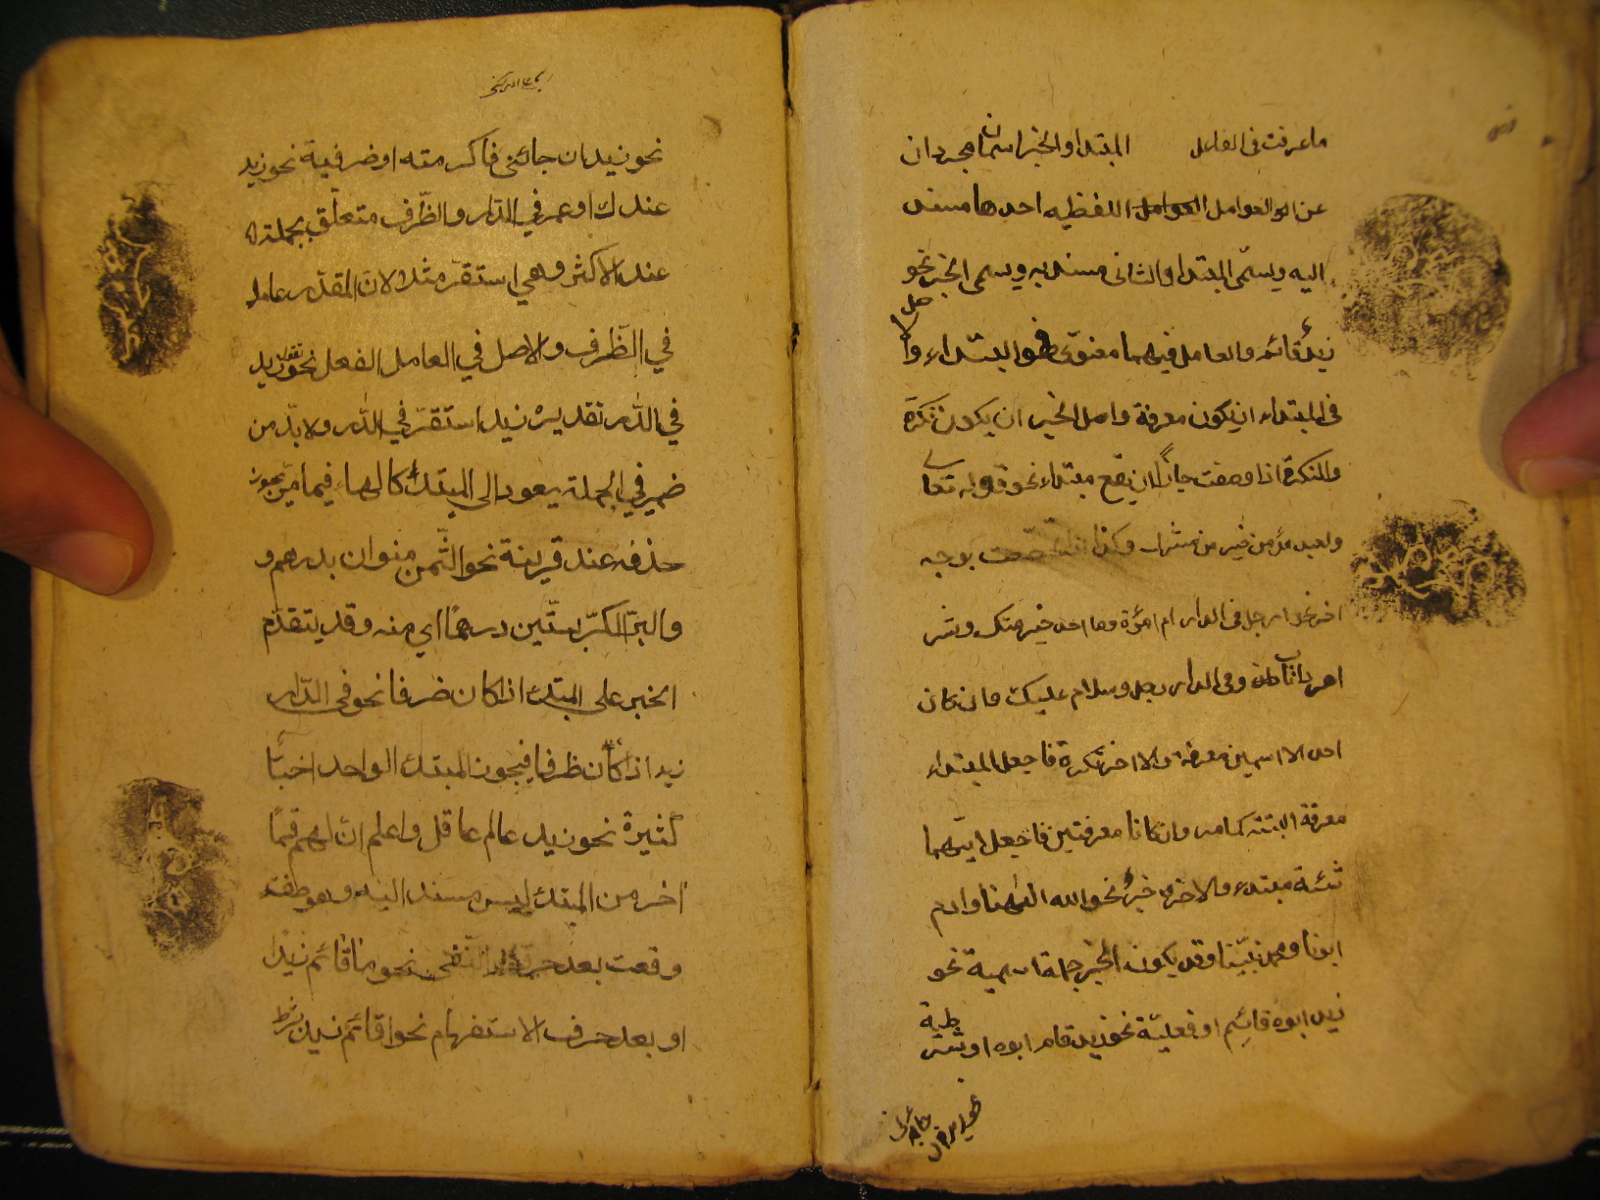 ما عرفت في الفاعل المبتداء والخبر اسمان مجردان
عن العوامل اللفظيه احدهما مسند
اليه ويسمّى المبتداء والثانى مسند به ويسمى الخبر نحو
زيدٌ قائم والعامل فيهما معنوىّ وهو الابتداء واصل
فى المبتداء ان يكون معرفة واصل الخبر ان يكون نكرة
والنكرة اذا وصفت جاز ان يقع مبتداء نحو قوله تعا
ولعبد مؤمن خير من مشرك وكذا اذا تخصصت بوجه
اخر نحو ارجل فى الدار ام امرٔة وما احد خير منك وشر
اهر ذا ناب وفى الدار رجل وسلام عليك فان كان
احد الاسمين معرفة والاخر نكرة فاجعل المبتداء
معرفة البتة كما مر وان كانا معرفتين فاجعل ايّهما
شئت مبتداء والاخر خبرٌ نحو الله الٰهنا وادم
ابونا ومحمد نبيّنا وقد يكون الخبر جملة اسمية نحو
زيد ابوه قائِم او فعليّة نحو زيد قام ابوه او شرطية
نحو زيد ان جائنى فاكرمته او ضرفية نحو زيد
عندك او عمر في الدّار والظّرف متعلّق بجملة
عند الاكثر وهي استقرّ مثلا لان المقدّر عامل
في الظّرف والاصل في العامل الفعل نحو زيد
في الدّار تقديره زيد استقرّ في الدّار ولا بدّ من
ضمير في الجملة يعود الى المبتدٔا كالهاء فيما مرّ يجوز
حذفه عند قرينة نحو الثّمن منوان بدرهم و
والبرّ الكرّ بستّين درهمًا اي منه وقد يتقدّم
الخبر على المبتدٔا اذا كان ضرفا نحو في الدّار
زيد اذا كان ظرفا فيجوز المبتدٔا الواحد اخبارًا
كثيرة نحو زيد عالم عاقل واعلم انّ لهم قسمًا
اخر من المبتدٔا ليس مسند اليه وهو صفت
وقعت بعد حرف النّفى نحو ما قائم زيدٌ
او بعد حرف الاستفهام نحو اقائم زيد بشرط